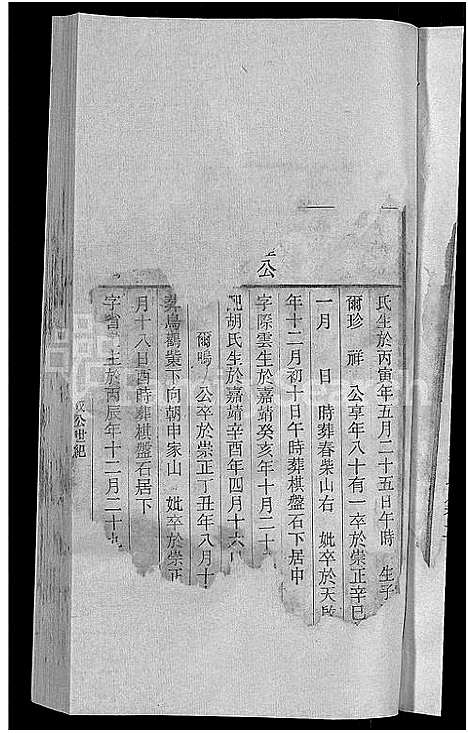 公
氏生於丙寅年五月二十五日午時　生子
爾珍　祥　公享年八十有一卒於崇正辛巳
一月　日　時葬春柴山右　妣卒於天啟
年十二月初十日午時葬棋盤石下居中
字際雲生於嘉靖癸亥年十月二十
配胡氏生於嘉靖辛酉年四月十六
爾暘　公卒於崇正丁丑年八月十
葬烏鸛巢下向朝申家山　妣卒於崇正
月十八日酉時葬棋盤石居下
字省　生於丙辰年十二月二十九
公世紀